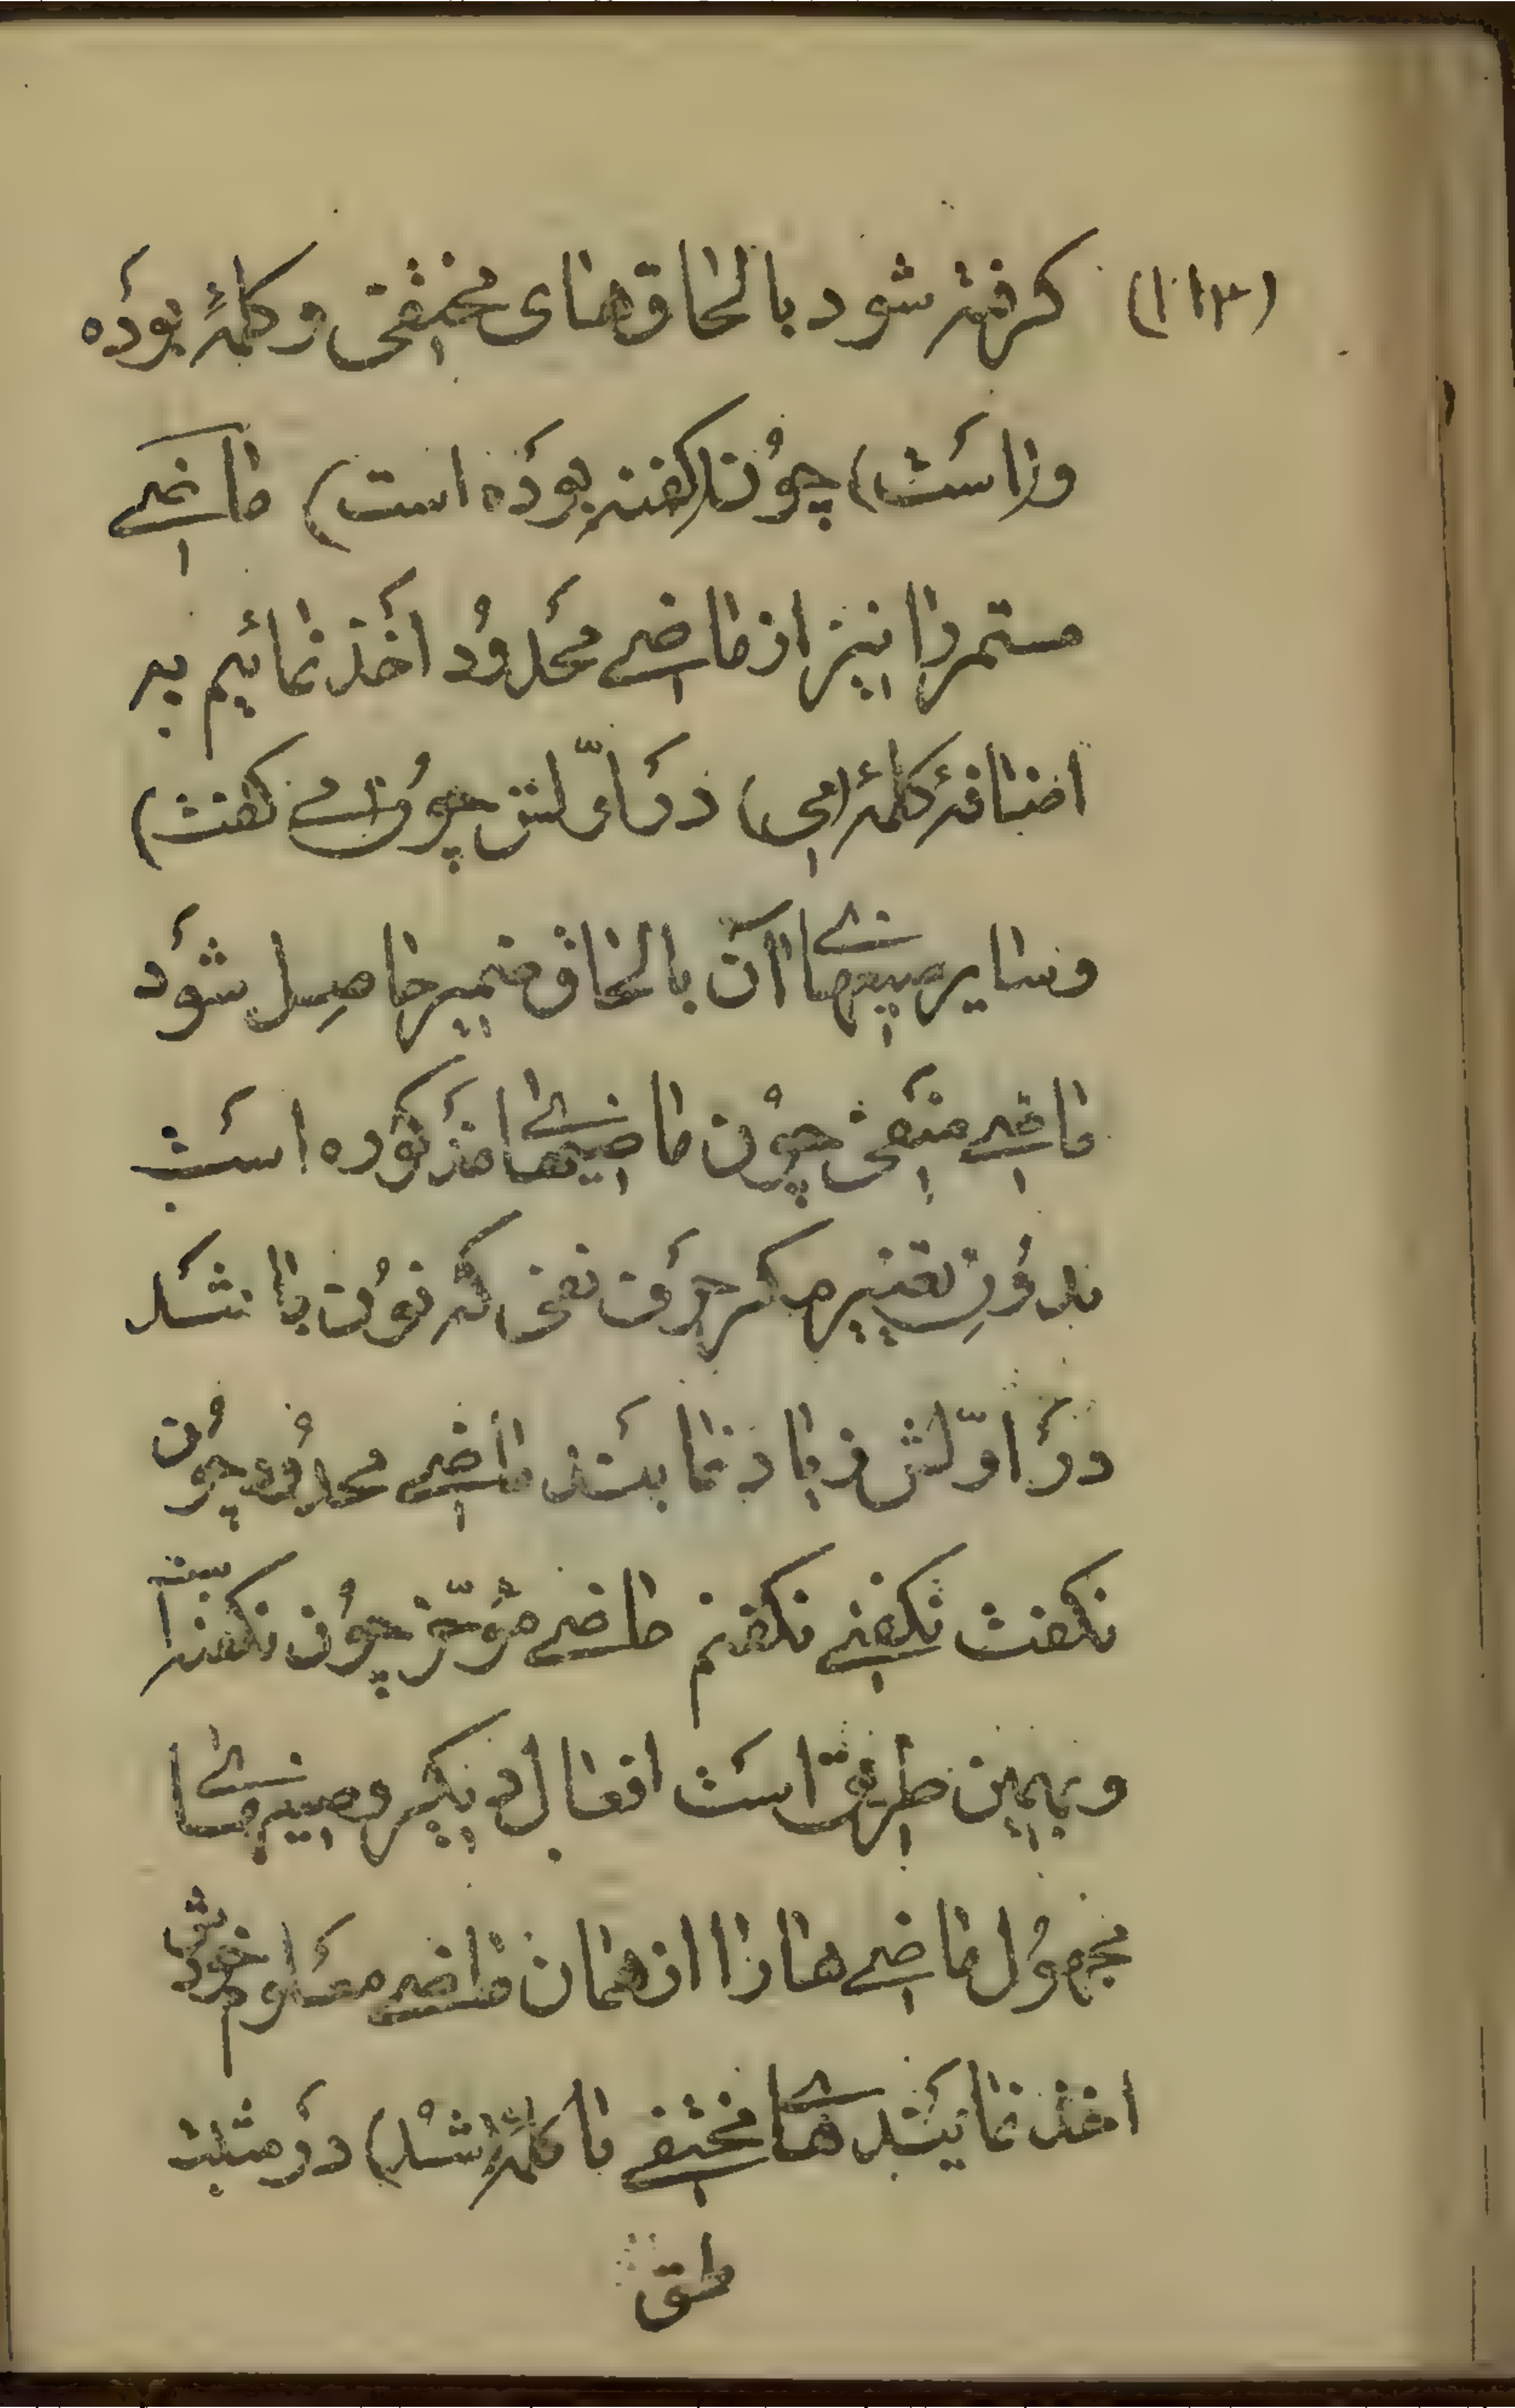 (۱۱۳) کرفته شود بالحاق های مختفی و کلمهٔ بوَده
و (اسَت) چوُن (کفته بوَده است) ماضے
مستمر را نیز از ماضے محَدوُد اَخذ نمائیم به
اضافهٔ کلمهٔ (می) درَ اوّلش چوُن (مے کفت)
و سایر صیغهاے آن بالحاق ضمیر حاصِل شوَد
ماضے منَفی چوُن ماضیهاے مذَکوره اسَت
بدوُنِ تغییر مکر حرَف نفی که نوُن باشَد
درَ اوّلش زیاد نمایَند ماضے محدوُد چوُن
نکفت نکفتے نکفتم ماضے مؤخّر چوُن نکفته است
و بهمین طریق اسَت افعال دیکر و صیغه هاے
مجهوُل ماضے ها را از همان ماضے معَلوم خودش
اخذ نمایَند هاے مختفے با کلمهٔ (شُد) درَ مثبت
طق